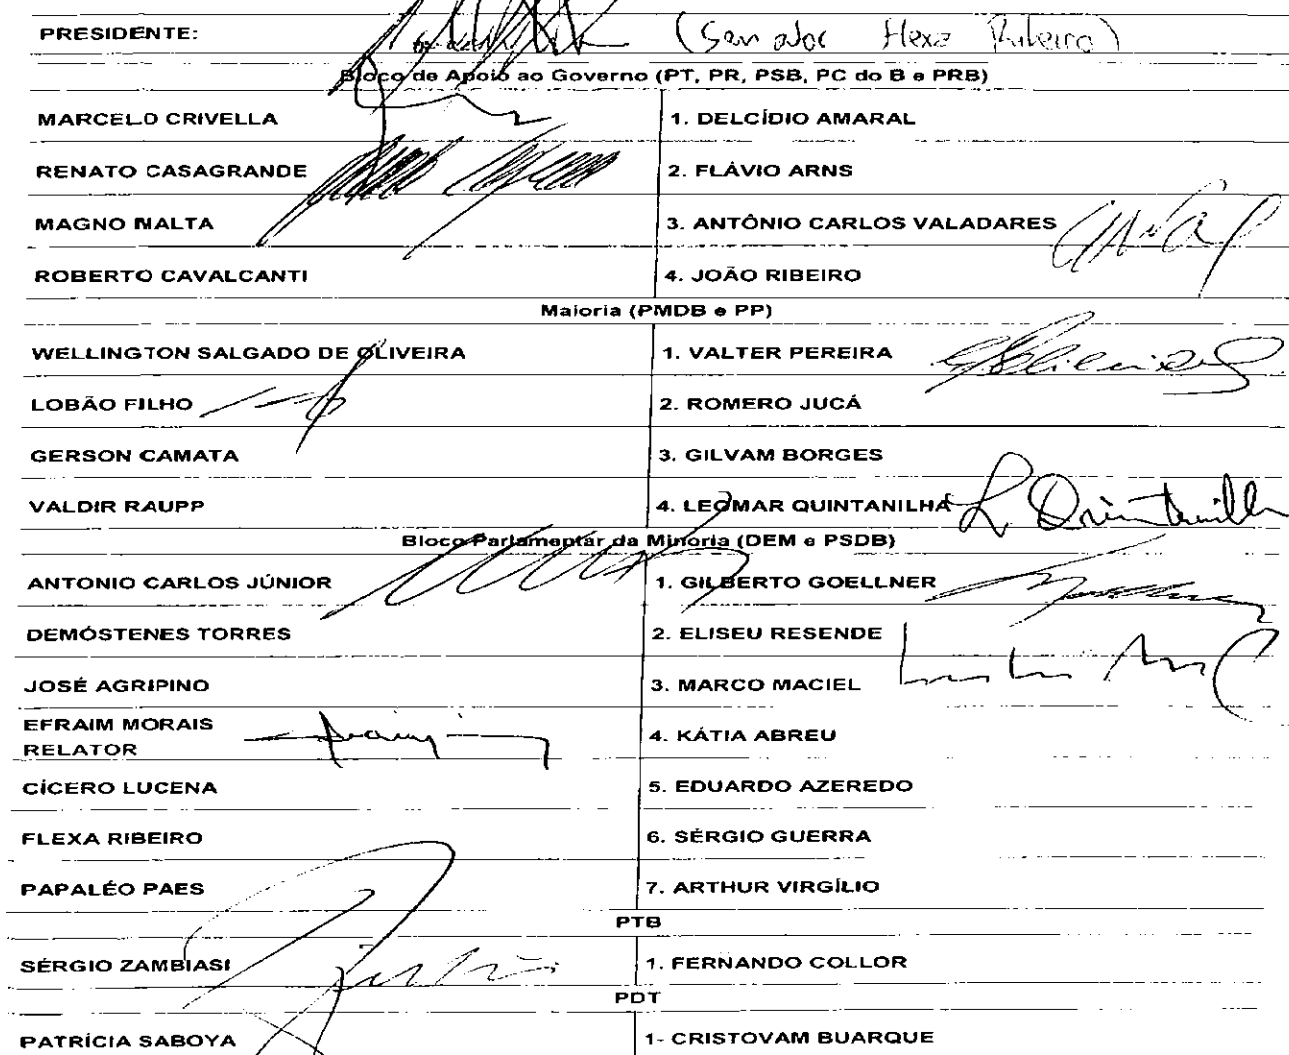 PRESIDENTE: (Senador Flexa Ribeiro)
Bloco de Apoio ao Governo (PT, PR, PSB, PC do B e PRB)
MARCELO CRIVELLA 1. DELCÍDIO AMARAL
RENATO CASAGRANDE 2. FLÁVIO ARNS
MAGNO MALTA 3. ANTÔNIO CARLOS VALADARES
ROBERTO CAVALCANTI 4. JOÃO RIBEIRO
Maioria (PMDB e PP)
WELLINGTON SALGADO DE OLIVEIRA 1. VALTER PEREIRA
LOBÃO FILHO 2. ROMERO JUCÁ
GERSON CAMATA 3. GILVAM BORGES
VALDIR RAUPP 4. LEOMAR QUINTANILHA L Quintanilha
Bloco Parlamentar da Minoria (DEM e PSDB)
ANTONIO CARLOS JÚNIOR 1. GILBERTO GOELLNER
DEMÓSTENES TORRES 2. ELISEU RESENDE
JOSÉ AGRIPINO 3. MARCO MACIEL
EFRAIM MORAIS
RELATOR 4. KÁTIA ABREU
CÍCERO LUCENA 5. EDUARDO AZEREDO
FLEXA RIBEIRO 6. SÉRGIO GUERRA
PAPALÉO PAES 7. ARTHUR VIRGÍLIO
PTB
SÉRGIO ZAMBIASI 1. FERNANDO COLLOR
PDT
PATRÍCIA SABOYA 1- CRISTOVAM BUARQUE